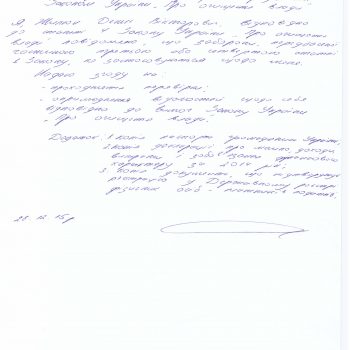 Законом України „Про очищення влади"
Я, Житков Денис Вікторович, відповідно
до статті 4 Закону України „Про очищення
влади" повідомляю, що заборони, передбачені
частиною третьою або четвертою статті
1 Закону, не застосовуються щодо мене.
Надаю згоду на:
- проходження перевірки;
- оприлюднення відомостей щодо себе
відповідно до вимог Закону України
„Про очищення влади".
Додаток: 1. Копія паспорта громадянина України;
2. Копія декларації про майно, доходи,
витрати і зобов'язання фінансового
характеру за 2014 рік;
3. Копія документа, що підтверджує
реєстрацію у Державному реєстрі
фізичних осіб - платників податків.